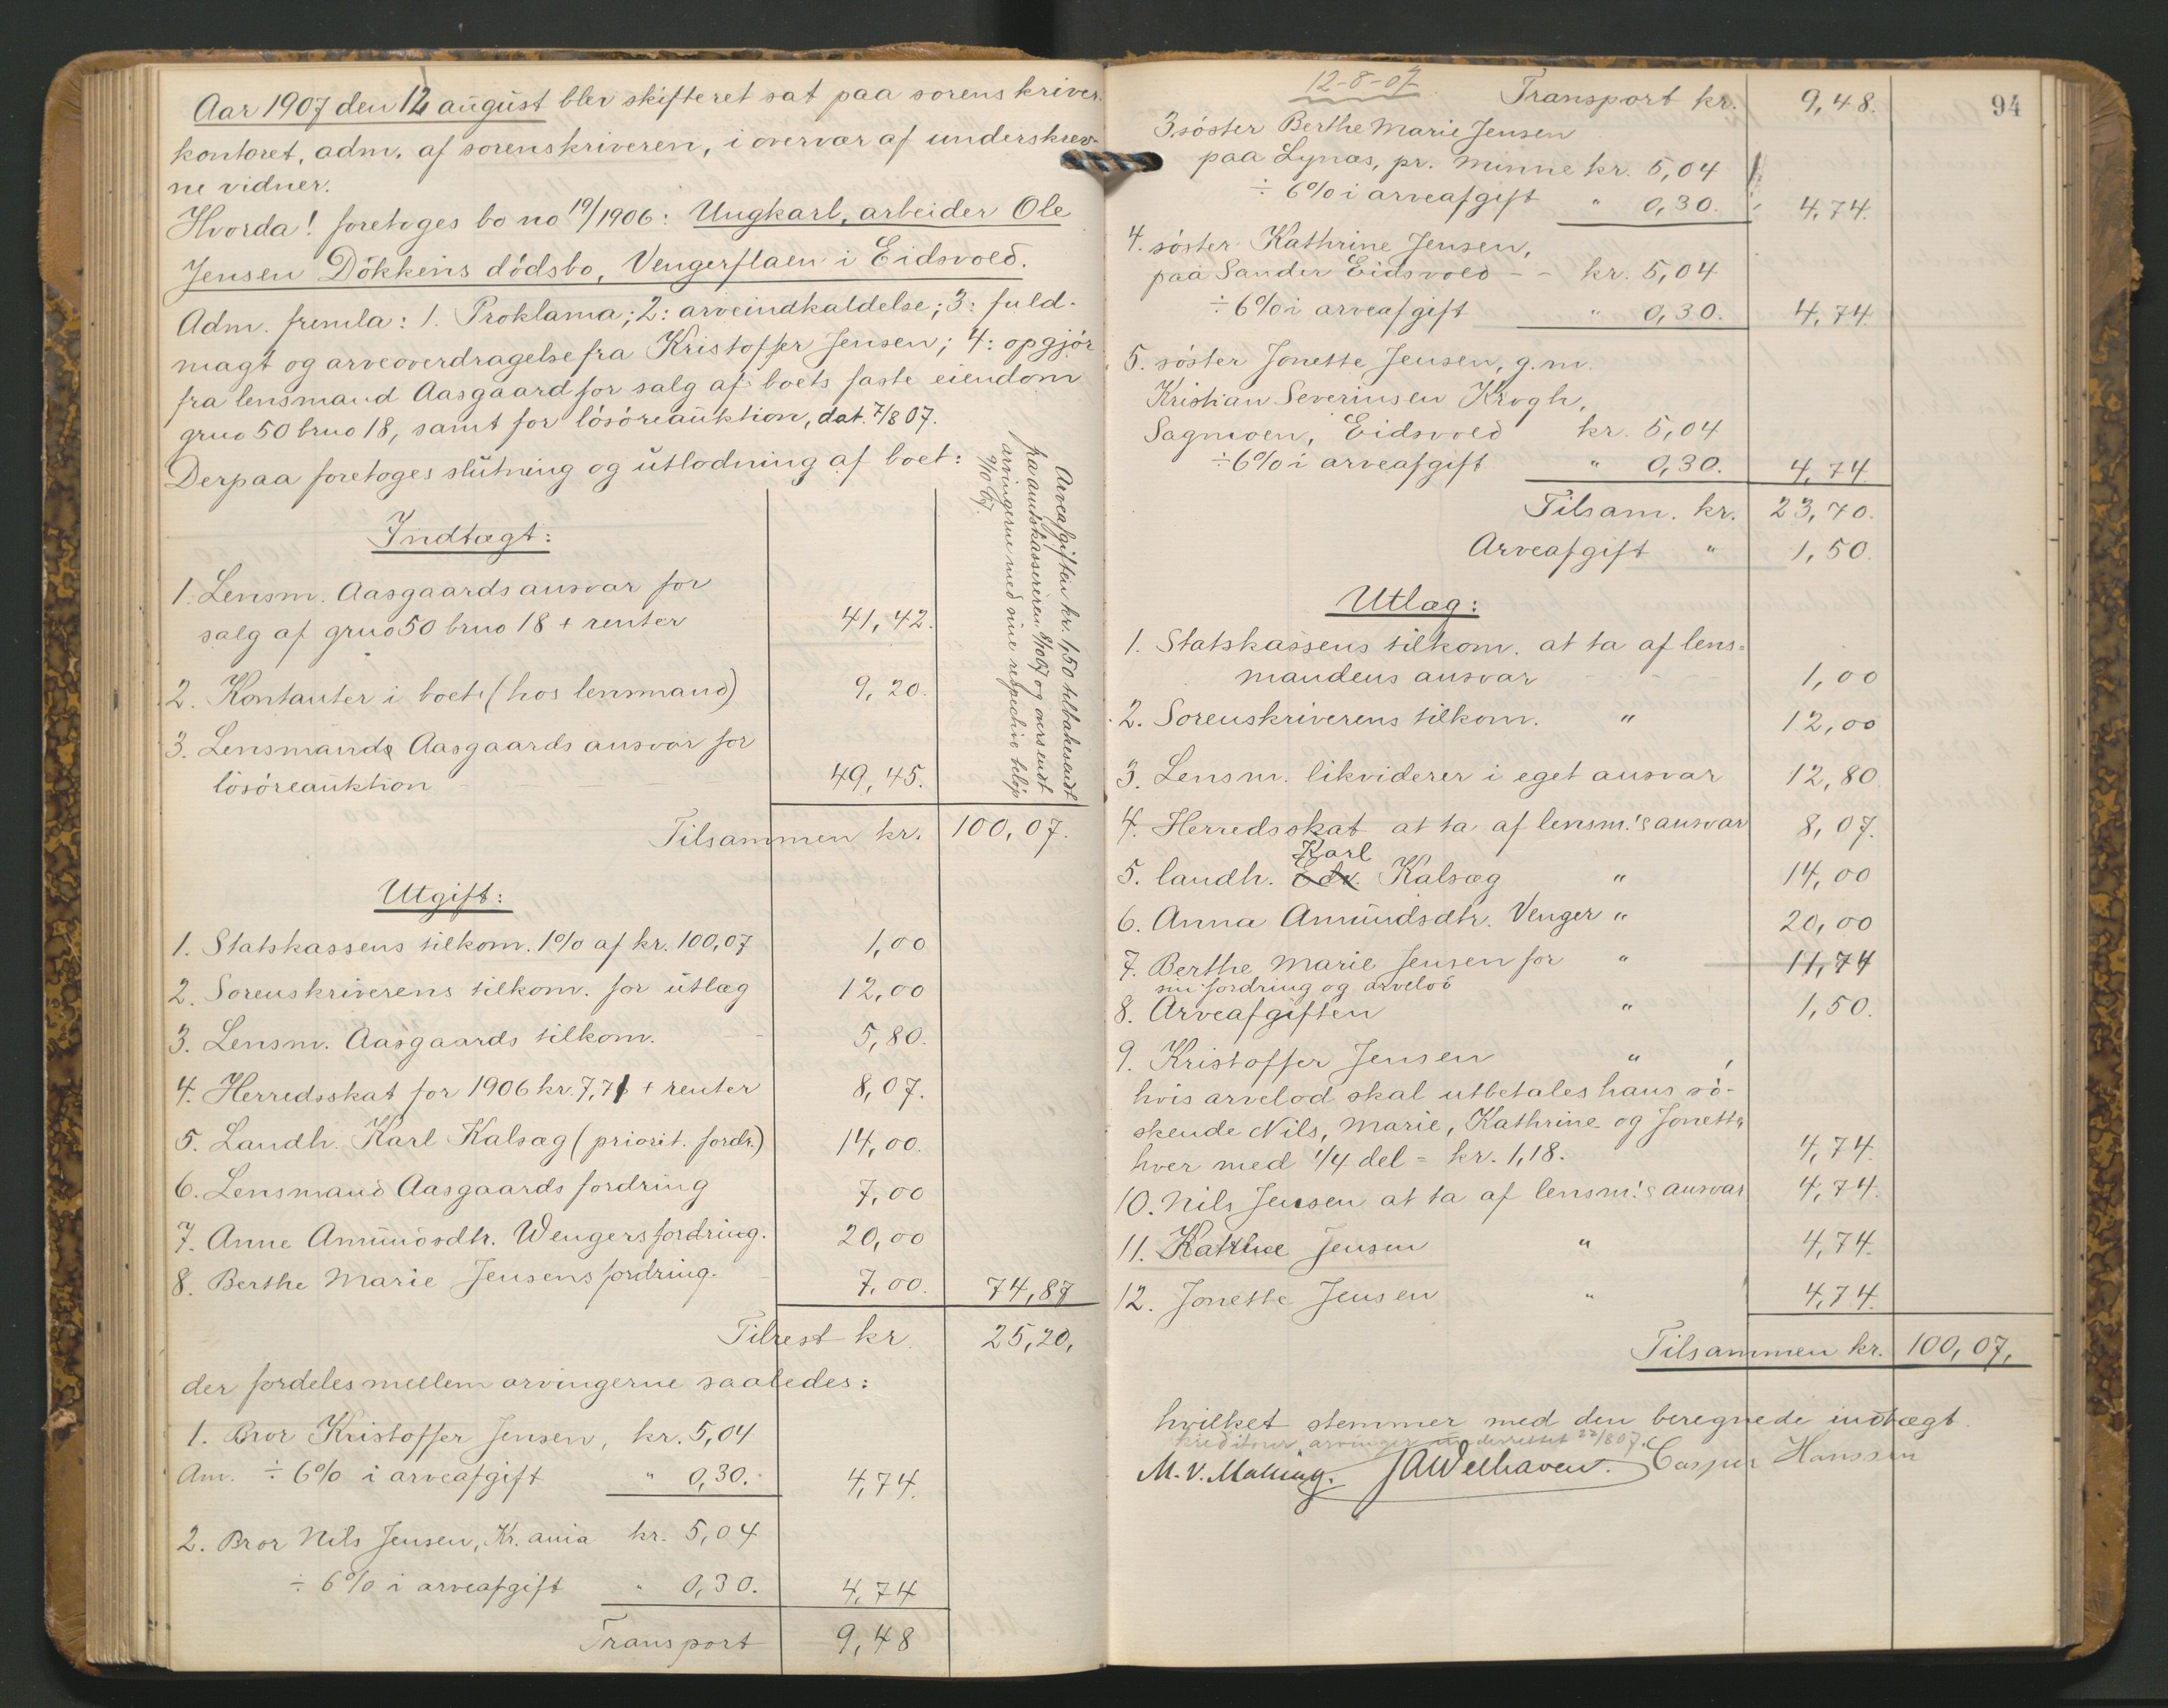 Aar 1907 den 12 august blev skifteret sat paa sorenskriver-
kontoret, adm. af sorenskriveren, i overvær af underskrev-
ne vidner.
Hvorda! foretoges bo no 19/1906: Ungkarl, arbeider Ole
Jensen Dökkens dödsbo, Vengerflaen i Eidsvold.
Adm. fremla: 1. Proklama; 2: arveindkaldelse; 3: fuld-
magt og arveoverdragelse fra Kristoffer Jensen; 4: opgjör
fra lensmand Aasgaard for salg af boets faste eiendom
gruo 50 bruo 18, samt for lösöreauktion, dat. 7/8 07.
Derpaa foretoges slutning og utlodning af boet:
Arveafgiften kr. 1,50 tilbakesendt
fra amtskassereren 8/10 07 og oversendt
arvingerne med sine respective beløp
9/10 07.
Indtægt:
1. Lensm. Aasgaards ansvar for
salg af gruo 50 bruo 18 + renter 41,42.
2. Kontanter i boet (hos lensmand) 9,20.
3. Lensmand Aasgaards ansvar for
lösöreauktion - - - - 49,45.
Tilsammen kr. 100,07.
Utgift:
1. Statskassens tilkom. 1% af kr. 100,07 1,00
2. Sorenskriverens tilkom. for utlæg 12,00
3. Lensm. Aasgaards tilkom. - 5,80.
4. Herredsskat for 1906 kr. 7,71 + renter 8,07.
5. Landh. Karl Kalsæg (priorit. fordr.) 14,00.
6. Lensmand Aasgaards fordring 7,00
7. Anne Amundsdtr. Wengers fordring. 20,00
8. Berthe Marie Jensens fordring. 7,00. 74,87
Tilrest kr. 25,20,
der fordeles mellem arvingerne saaledes:
1. Bror Kristoffer Jensen, kr. 5,04
Am. ÷ 6% i arveafgift " 0,30. 4,74.
2. Bror Nils Jensen, Kr.ania kr. 5,04
÷ 6% i arveafgift " 0,30. 4,74
Transport 9,48
94
12-8-07. Transport kr. 9,48.
3. söster Berthe Marie Jensen
paa Lynæs, pr. Minne kr. 5,04
÷ 6% i arveafgift " 0,30. 4,74.
4. söster Kathrine Jensen,
paa Sander Eidsvold - - kr. 5,04
÷ 6% i arveafgift " 0,30. 4,74.
5. söster Jonette Jensen, g.m.
Kristian Severinsen Krogh,
Sagmoen, Eidsvold kr. 5,04
÷ 6% i arveafgift " 0,30. 4,74.
Tilsam. kr. 23,70.
Arveafgift " 1,50.
Utlæg:
1. Statskassens tilkom. at ta af lens=
mandens ansvar - - - 1,00
2. Sorenskriverens tilkom. " 12,00
3. Lensm. likviderer i eget ansvar 12,80
4. Herredsskat at ta af lensm.'s ansvar 8,07.
Karl
5. landh. Edv. Kalsæg " 14,00
6. Anna Amundsdtr. Venger " 20,00
7. Berthe Marie Jensen for " 11,74
sin fordring og arvelod
8. Arveafgiften " 1,50.
9. Kristoffer Jensen " ,
hvis arvelod skal utbetales hans sö-
skende Nils, Marie, Kathrine og Jonette
hver med 1/4 del = kr. 1,18. 4,74.
10. Nils Jensen at ta af lensm.'s ansvar 4,74.
11. Kathne Jensen " 4,74.
12. Jonette Jensen " 4,74.
Tilsammen kr. 100,07.
hvilket stemmer med den beregnede indtægt.
Kreditorer, arvinger underrettet 22/8 07.
M. V. Malling. JAWelhaven. Casper Hanssen